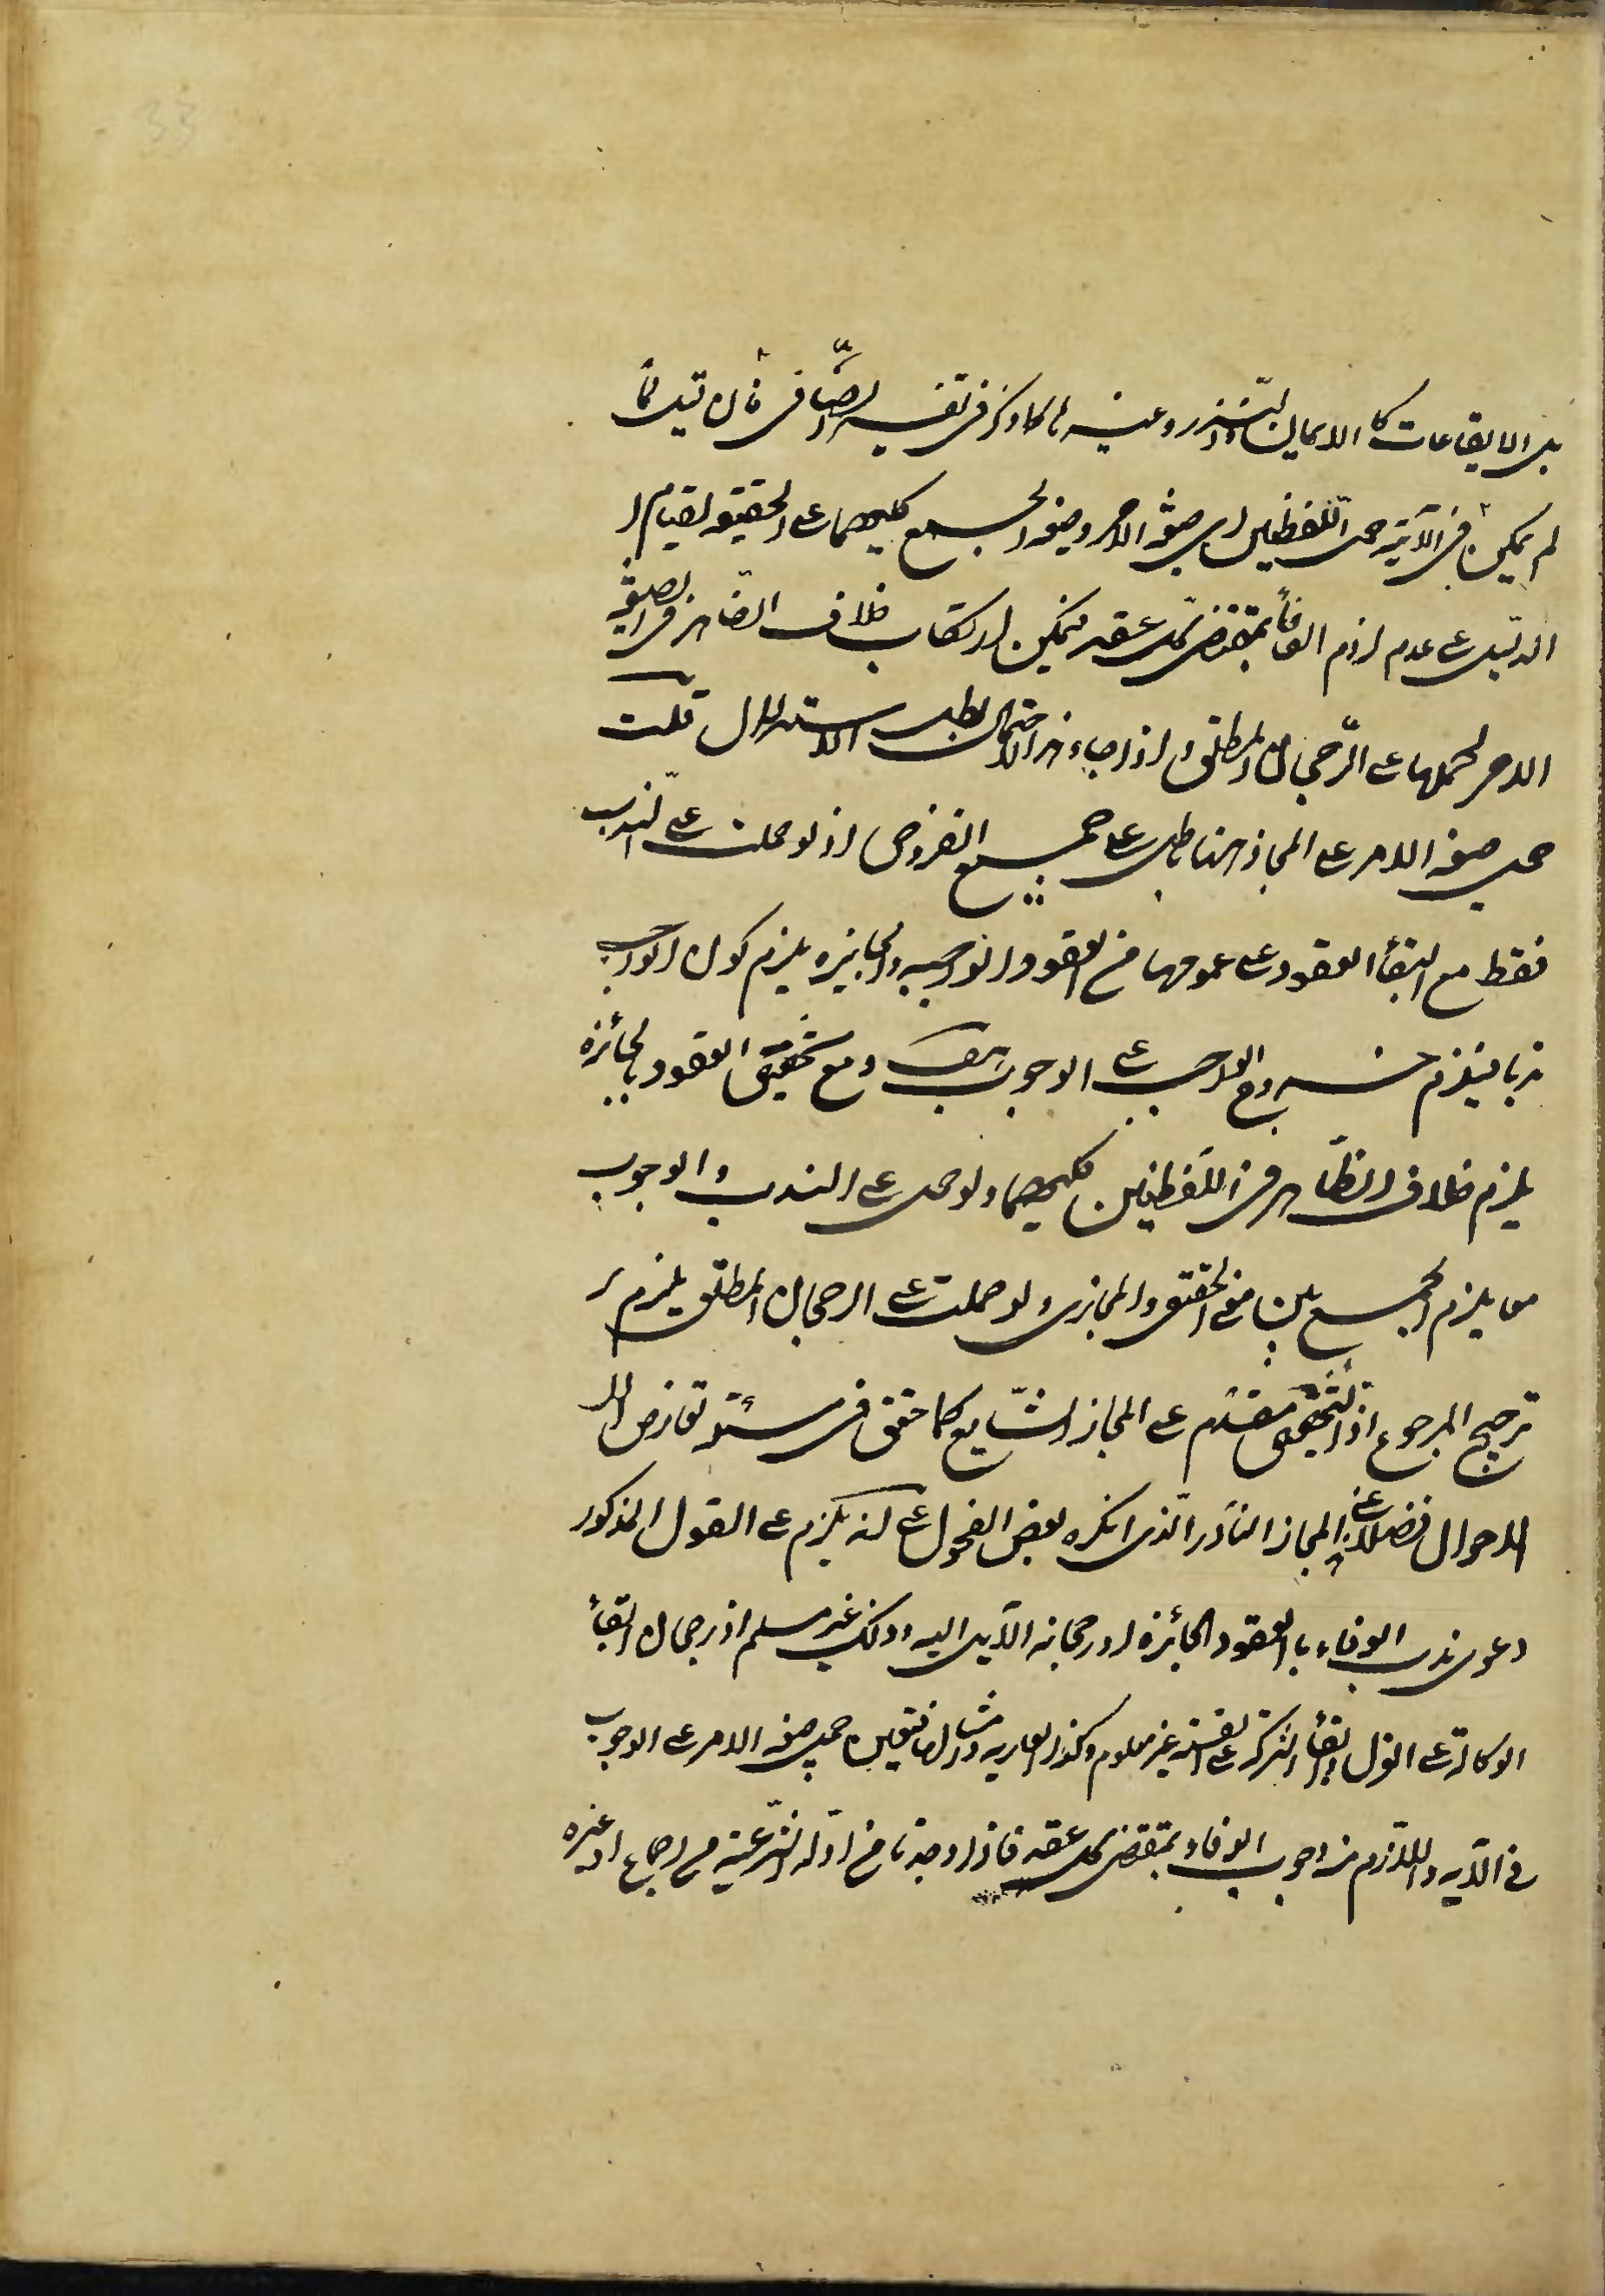 33
بل الايقاعات كالايمان والنذر وغيرها كما ذكر فى تفسير الصافى فان قيل لما
لم يمكن فى الآية حمل اللفظين اى صيغة الامر وصيغة الجمع كليهما على الحقيقة لقيام
الدليل على عدم لزوم الوفاء بمقتضى كل عقد فيمكن ارتكاب خلاف الظاهر فى صيغة
الامر لحملها على الرجحان المطلق و اذا جاء هذا الاحتمال بطل الاستدلال قلت
حمل صيغة الامر على المجاز هنا باطل على جميع الفروض اذ لو حملت على الندب
فقط مع ابقاء العقود على عمومها من العقود الواجبه والجايزه يلزم كون الواجب
ندبا فيلزم خروج الواجب على الوجوب هف و مع تخصيص العقود بالجائزه
يلزم خلاف الظاهر فى اللفظين كليهما ولو حمل على الندب والوجوب
معا يلزم الجمع بين معنى الحقيقى والمجازى ولو حملت على الرجحان المطلق يلزم
ترجيح المرجوع اذ التخصيص مقدم على المجاز الشايع كما حقق فى مسئلة تعارض
الاحوال فضلا عن المجاز النادر الذى انكره بعض الفحول على انه يلزم على القول المذكور
دعوى ندب الوفاء بالعقود الجائزه او رجحانه الآيل اليه وذلك غير مسلم اذ رجحان ابقاء
الوكالة على العزل وابقاء الشركة على القسمة غير معلوم وكذا العاريه وامثالها فتعين حمل صيغة الامر على الوجوب
فى الآيه واللازم منه وجوب الوفاء بمقتضى كل عقد فاذا وجدنا من ادلة الشرعية من اجماع او غيره